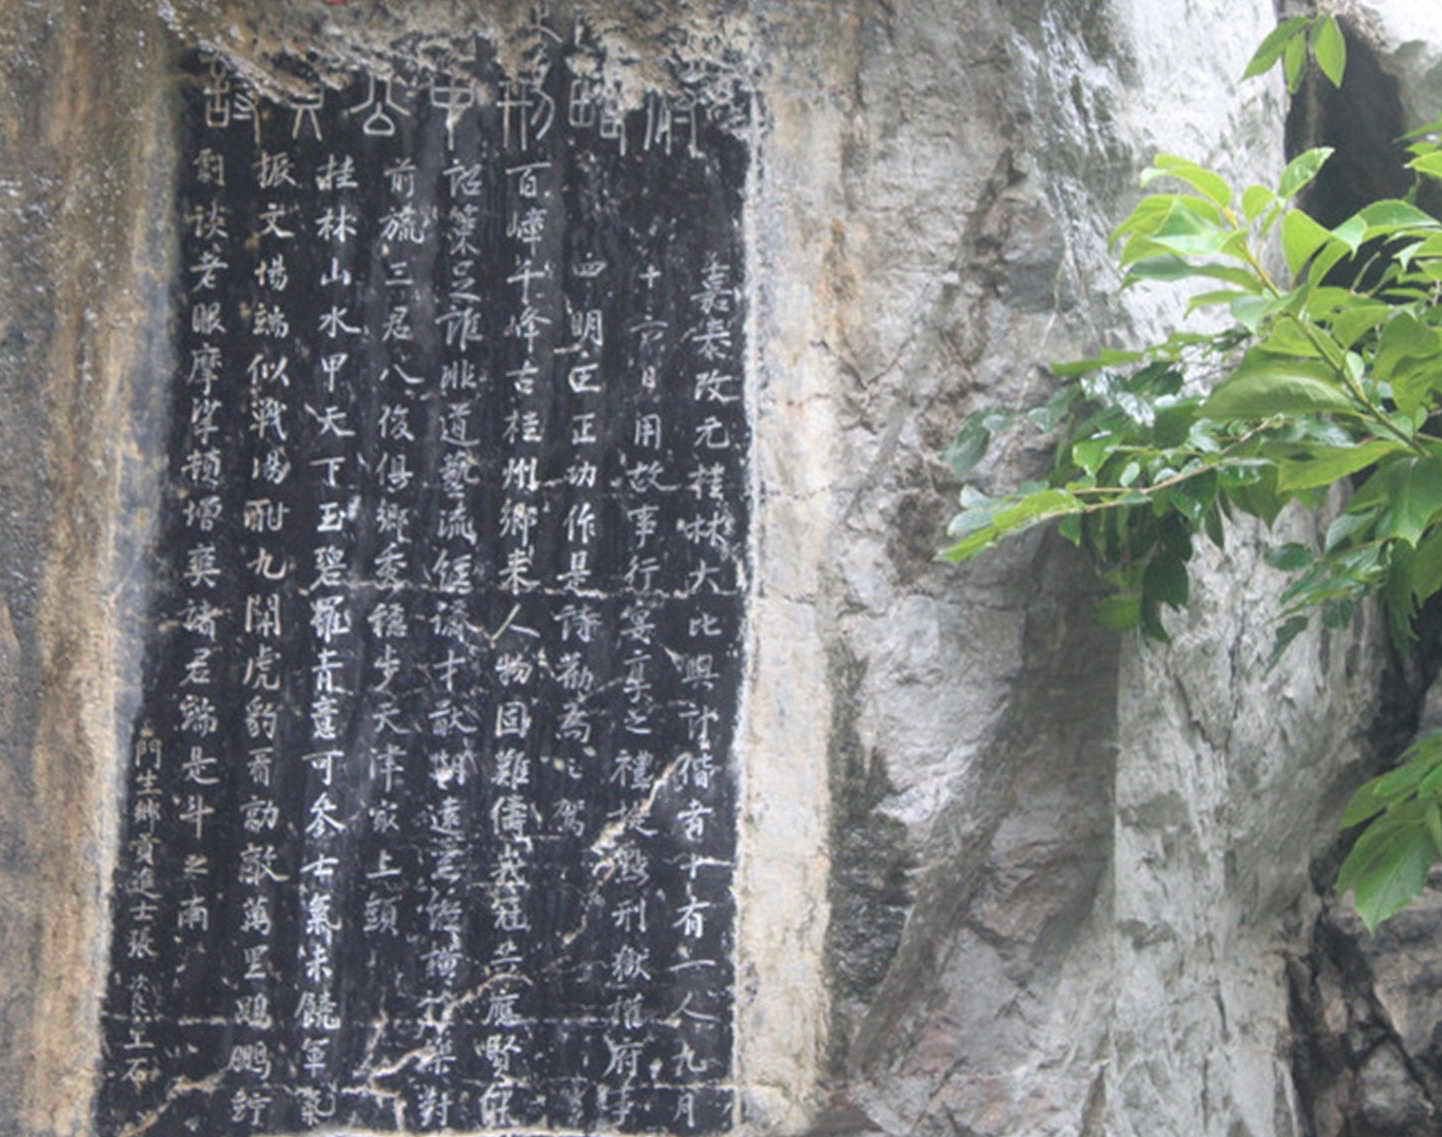 府略刑中公詩
嘉泰改元桂林大比與計偕者十有一人九月
十六日用故事行宴享之禮提點刑獄權府事
四明王正功作是詩勸爲之駕
百嶂千峰古桂州鄉來人物固難儔峩冠共應賢能
詔策足誰非道藝流經濟才猷期遠器縱橫禮樂對
前旒三君八俊俱鄉秀穩步天津冣上頭
桂林山水甲天下玉碧羅青意可參士氣未饒軍氣
振文場端似戰場酣九關虎豹看勍敵萬里鵾鵬佇
劇談老眼摩挲頓增爽諸君端是斗之南
門生鄉貢進士張次良上石